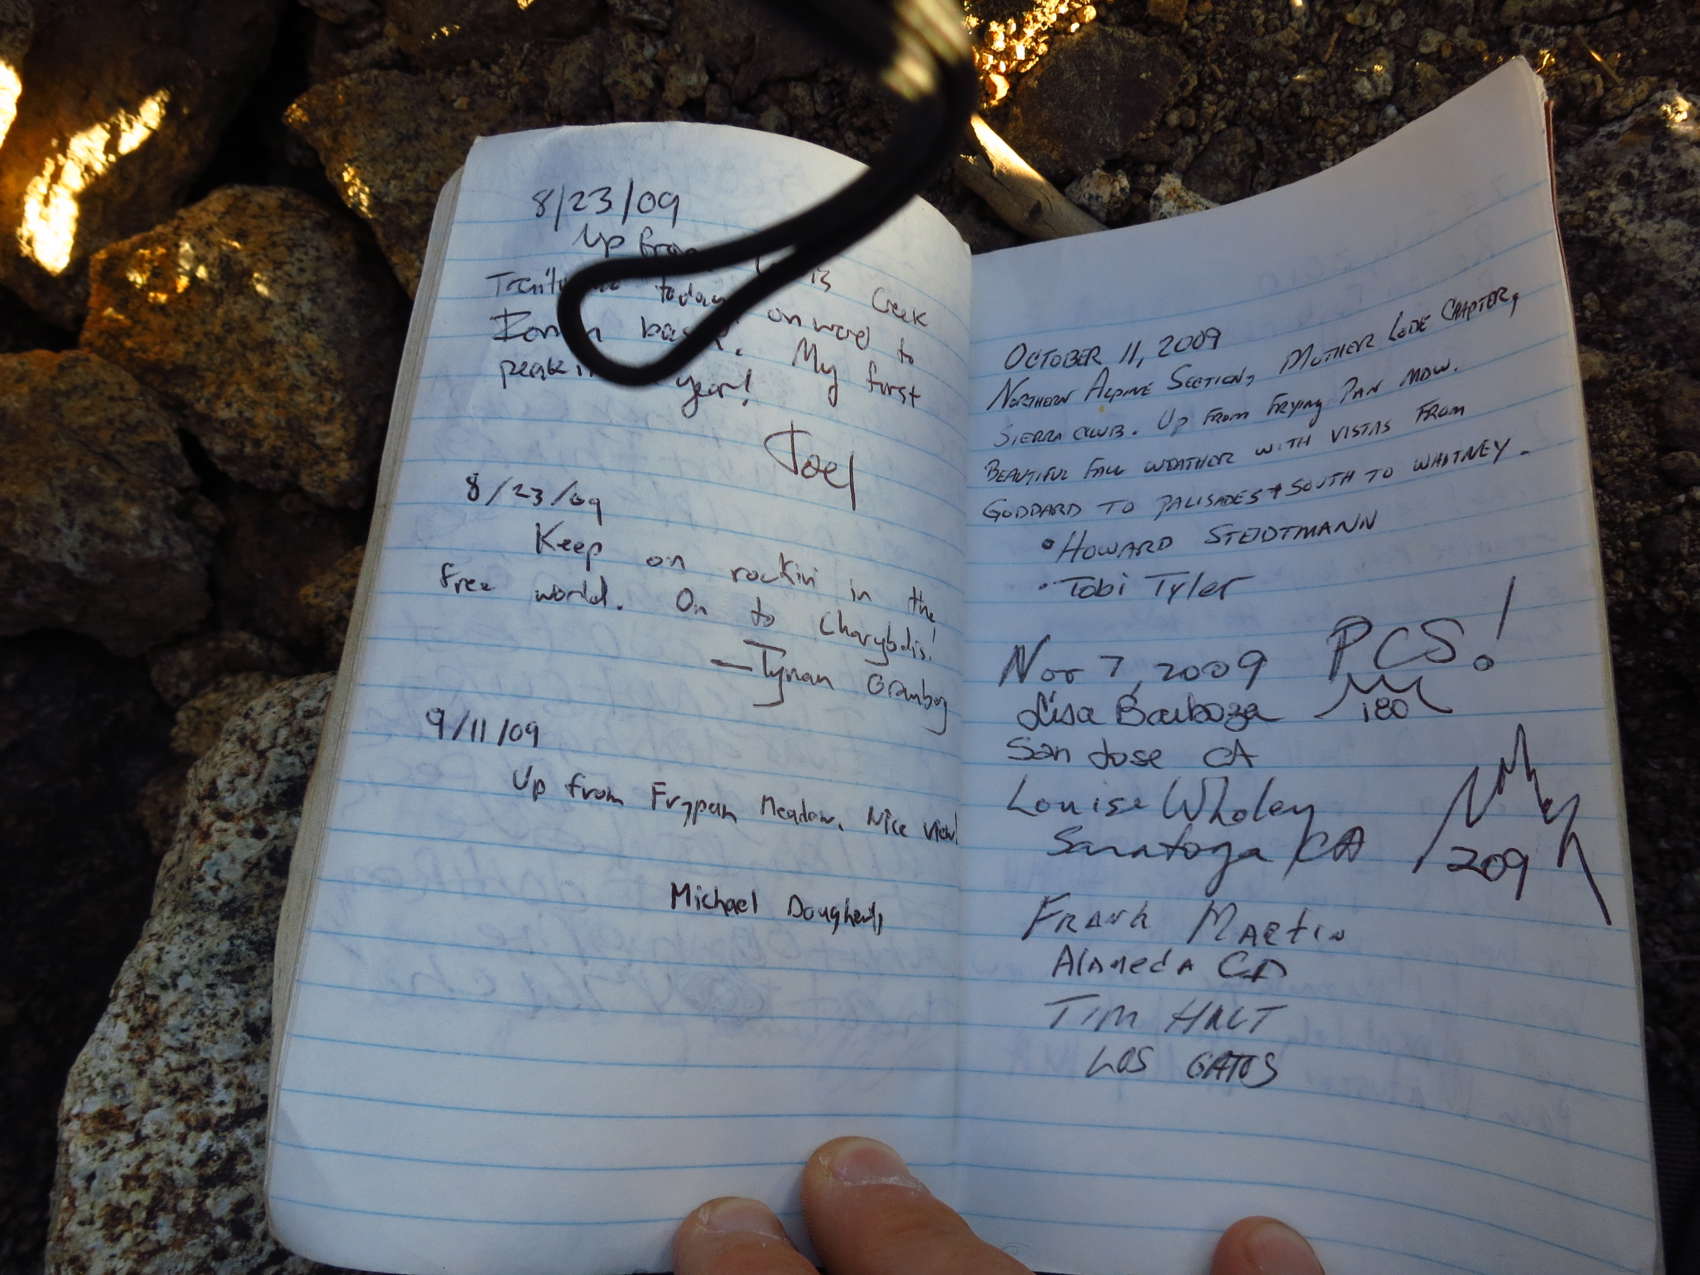 8/23/09
Up from Creek
today, onward to
basin. My first
peak year!
Joel
8/23/09
Keep on rockin' in the
free world. On to Charybdis!
—Tynan
9/11/09
Up from Frypan Meadow. Nice view!
Michael Dougherty
OCTOBER 11, 2009
NORTHERN ALPINE SECTION, MOTHER LODE CHAPTER,
SIERRA CLUB. UP FROM FRYING PAN MDW.
BEAUTIFUL FALL WEATHER WITH VISTAS FROM
GODDARD TO PALISADES + SOUTH TO WHITNEY.
• HOWARD STEIDTMANN
• Tobi Tyler
Nov 7, 2009 PCS!
Lisa Barboza 180
San Jose CA
Louise Wholey
Saratoga CA 209
FRANK MARTIN
Alameda CA
TIM HULT
LOS GATOS